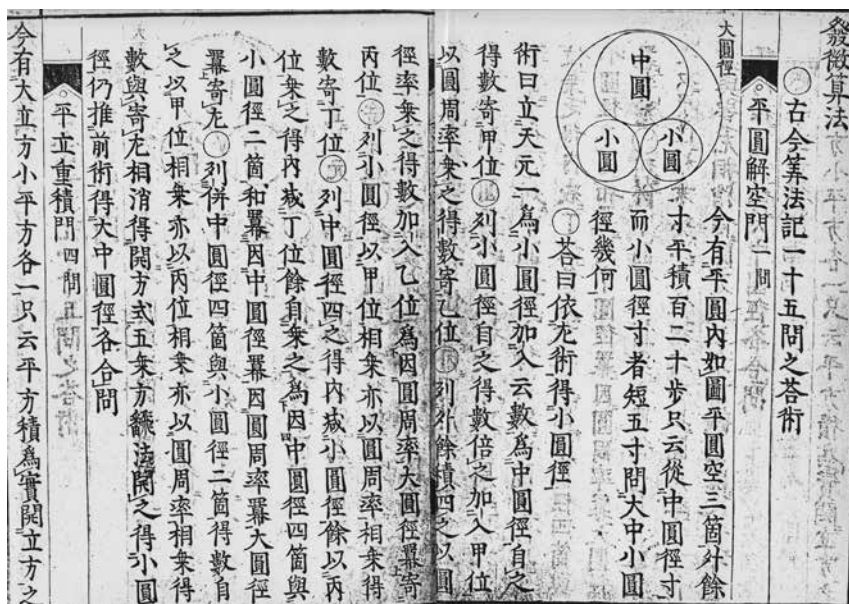 發微算法
○古今筭法記一十五問之荅術
○平圓解空問一問
大圓徑
中圓
小圓
小圓
今有平圓內如圖平圓空三箇外餘
寸平積百二十步只云從中圓徑寸
而小圓徑寸者短五寸問大中小圓
徑幾何
○荅曰依左術得小圓徑
術曰立天元一為小圓徑加入云數為中圓徑自之
得數寄甲位列小圓徑自之得數倍之加入甲位
以圓周率乗之得數寄乙位列外餘積四之以圓
徑率乗之得數加入乙位為因圓周率大圓徑羃寄
丙位列小圓徑以甲位相乗亦以圓周率相乗得
數寄丁位列中圓徑四之得內減小圓徑餘以丙
位乗之得內減丁位餘自乗之為因中圓徑四箇與
小圓徑二箇和羃因中圓徑羃因圓周率羃大圓徑
羃寄左○列併中圓徑四箇與小圓徑二箇得數自
之以甲位相乗亦以丙位相乗亦以圓周率相乗得
數與寄左相消得開方式五乗方飜法開之得小圓
徑仍推前術得大中圓徑各合問
○平立重積問四問
今有大立方小平方各一只云平方積為實開立方之